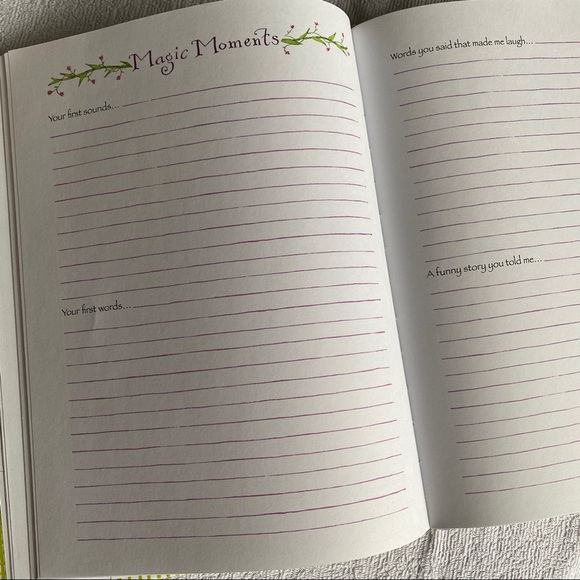 Magic Moments
Your first sounds...
Your first words...
Words you said that made me laugh...
A funny story you told me...